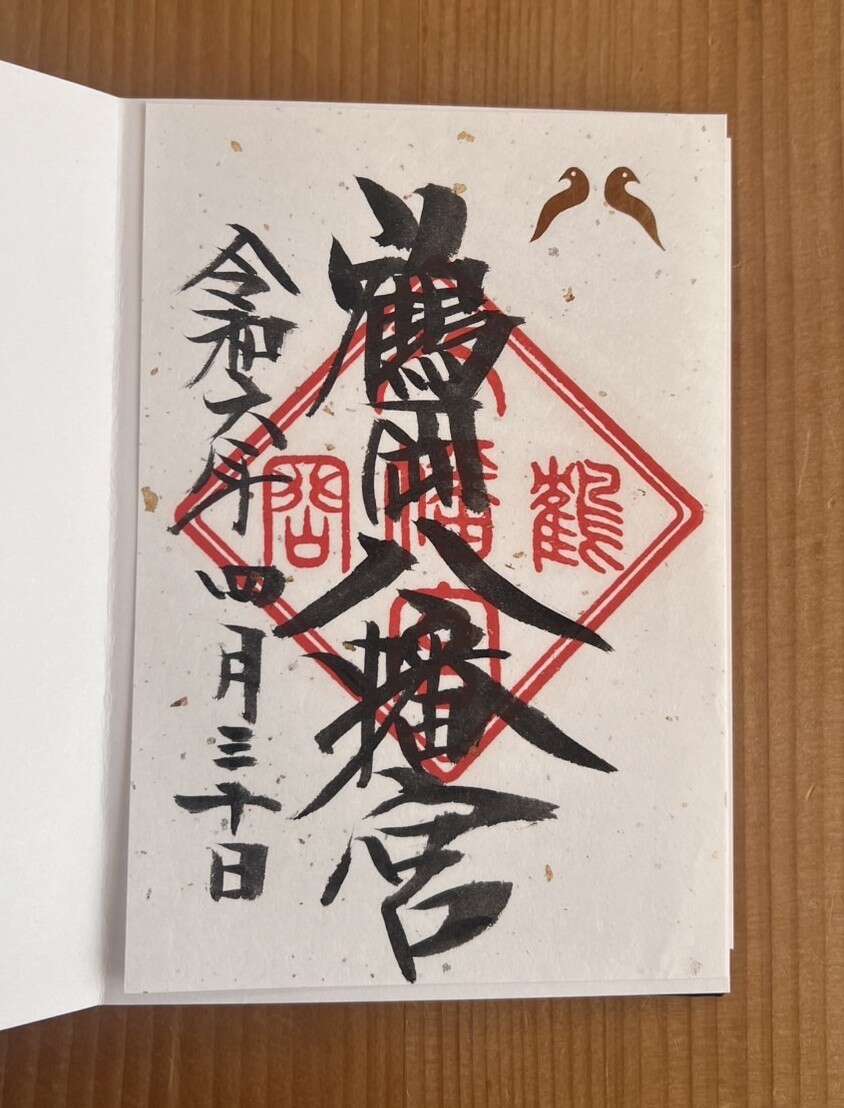 鶴岡八幡宮
令和六年四月三十日
鶴
八幡宮
岡